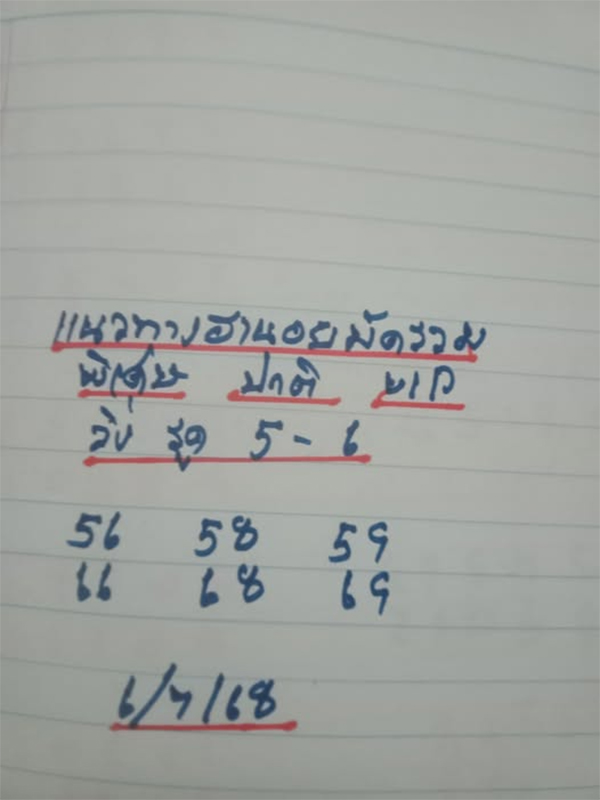 แนวทางฮานอยมัดรวม
พิเศษ ปกติ VIP
วิ่ง รูด 5 - 6
56 58 59
66 68 69
6/7/68